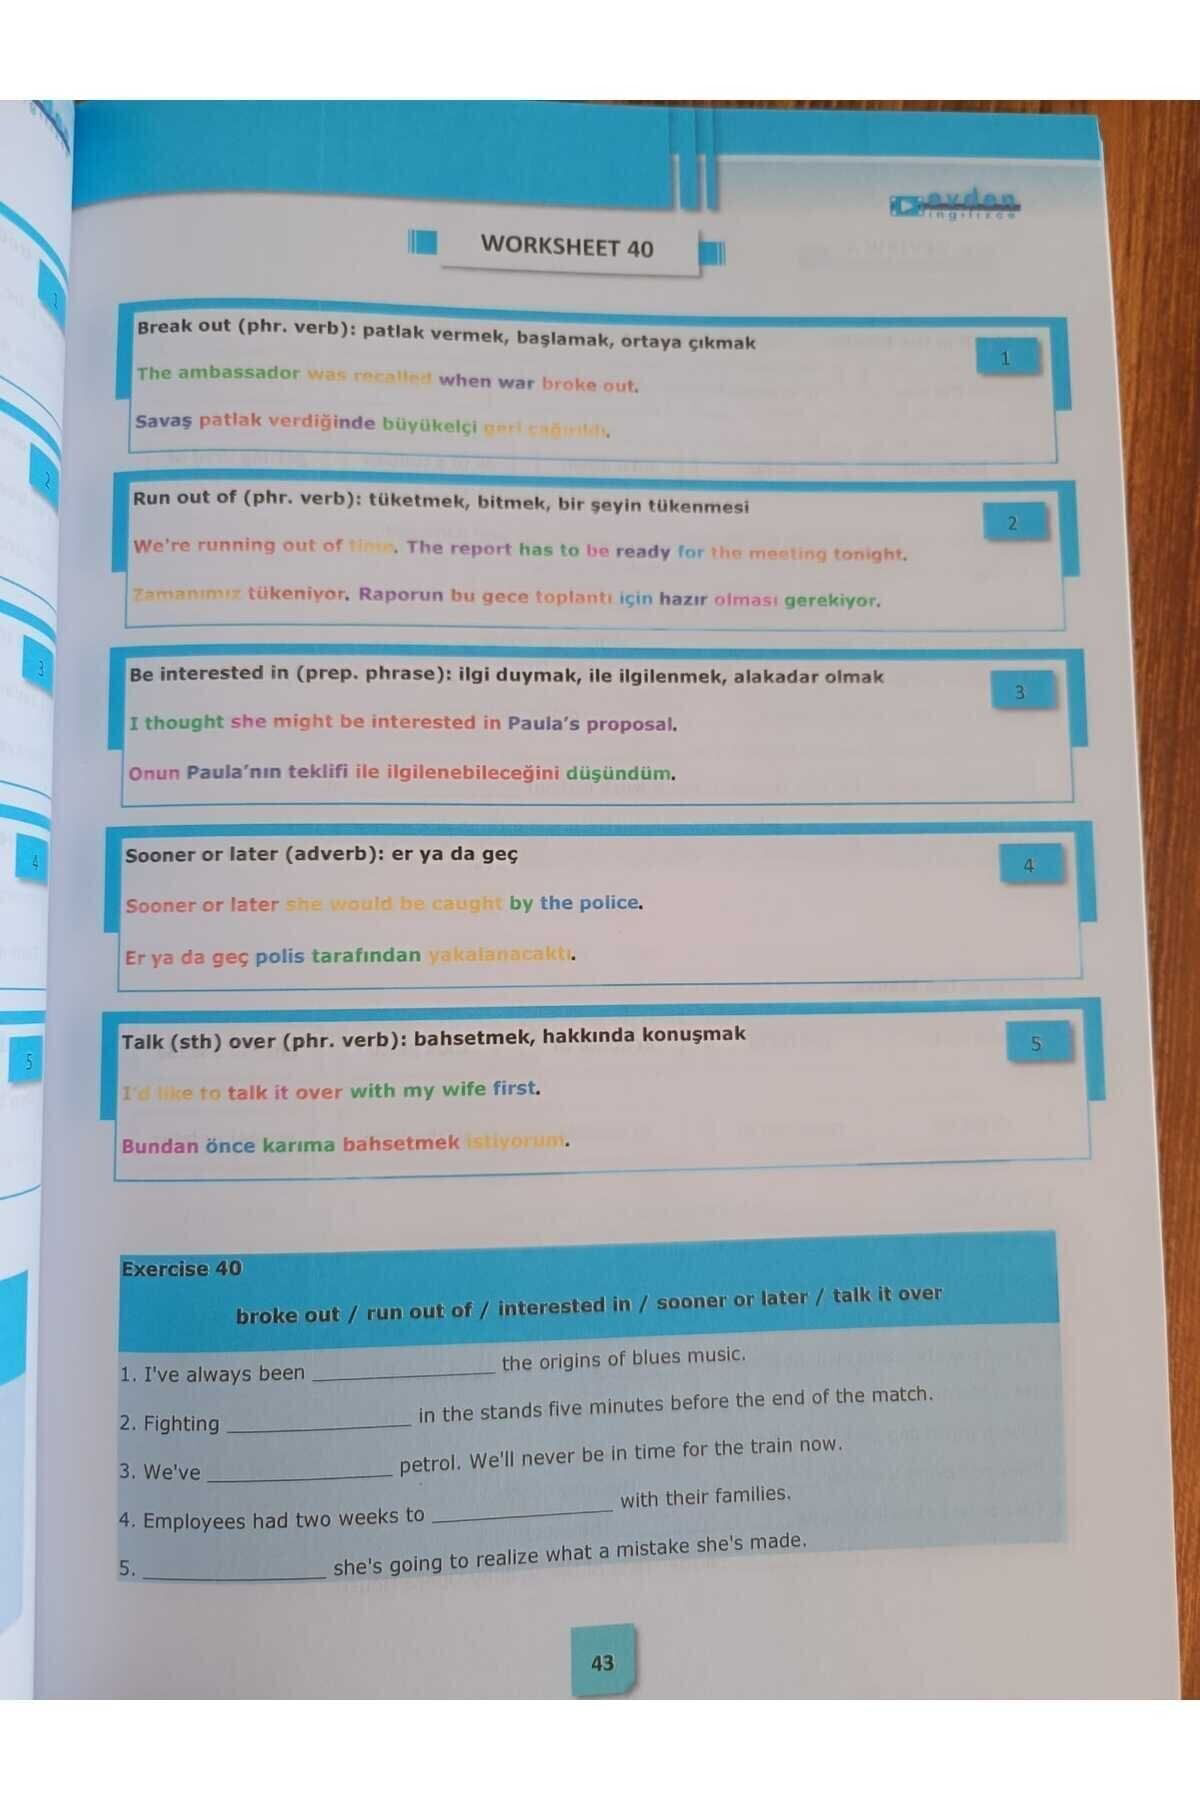 evden
ingilizce
WORKSHEET 40
Break out (phr. verb): patlak vermek, başlamak, ortaya çıkmak
1
The ambassador was recalled when war broke out.
Savaş patlak verdiğinde büyükelçi geri çağırıldı.
Run out of (phr. verb): tüketmek, bitmek, bir şeyin tükenmesi
2
We're running out of time. The report has to be ready for the meeting tonight.
Zamanımız tükeniyor. Raporun bu gece toplantı için hazır olması gerekiyor.
Be interested in (prep. phrase): ilgi duymak, ile ilgilenmek, alakadar olmak
3
I thought she might be interested in Paula's proposal.
Onun Paula'nın teklifi ile ilgilenebileceğini düşündüm.
Sooner or later (adverb): er ya da geç
4
Sooner or later she would be caught by the police.
Er ya da geç polis tarafından yakalanacaktı.
Talk (sth) over (phr. verb): bahsetmek, hakkında konuşmak
5
I'd like to talk it over with my wife first.
Bundan önce karıma bahsetmek istiyorum.
Exercise 40
broke out / run out of / interested in / sooner or later / talk it over
1. I've always been ________________ the origins of blues music.
2. Fighting ________________ in the stands five minutes before the end of the match.
3. We've ________________ petrol. We'll never be in time for the train now.
4. Employees had two weeks to ________________ with their families.
5. ________________ she's going to realize what a mistake she's made.
43
1
2
3
4
5